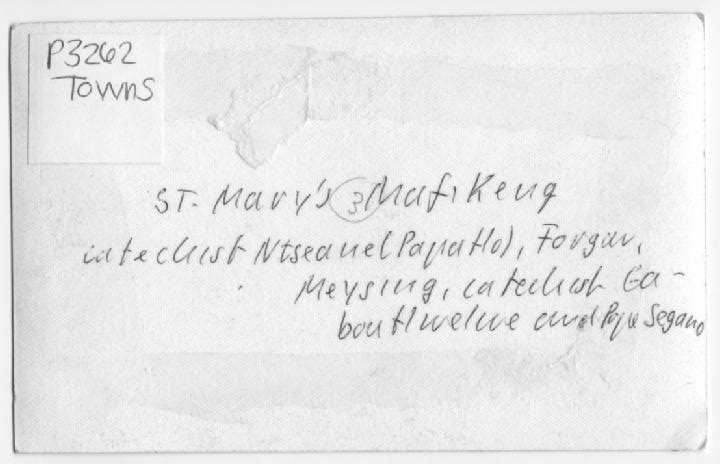 P3262
Towns
ST. Mary's 3 Mafikeng
catechist Ntseane(Papatlo), Forgar,
Meysing, catechist Ga-
boutlwelwe and Papa Segano